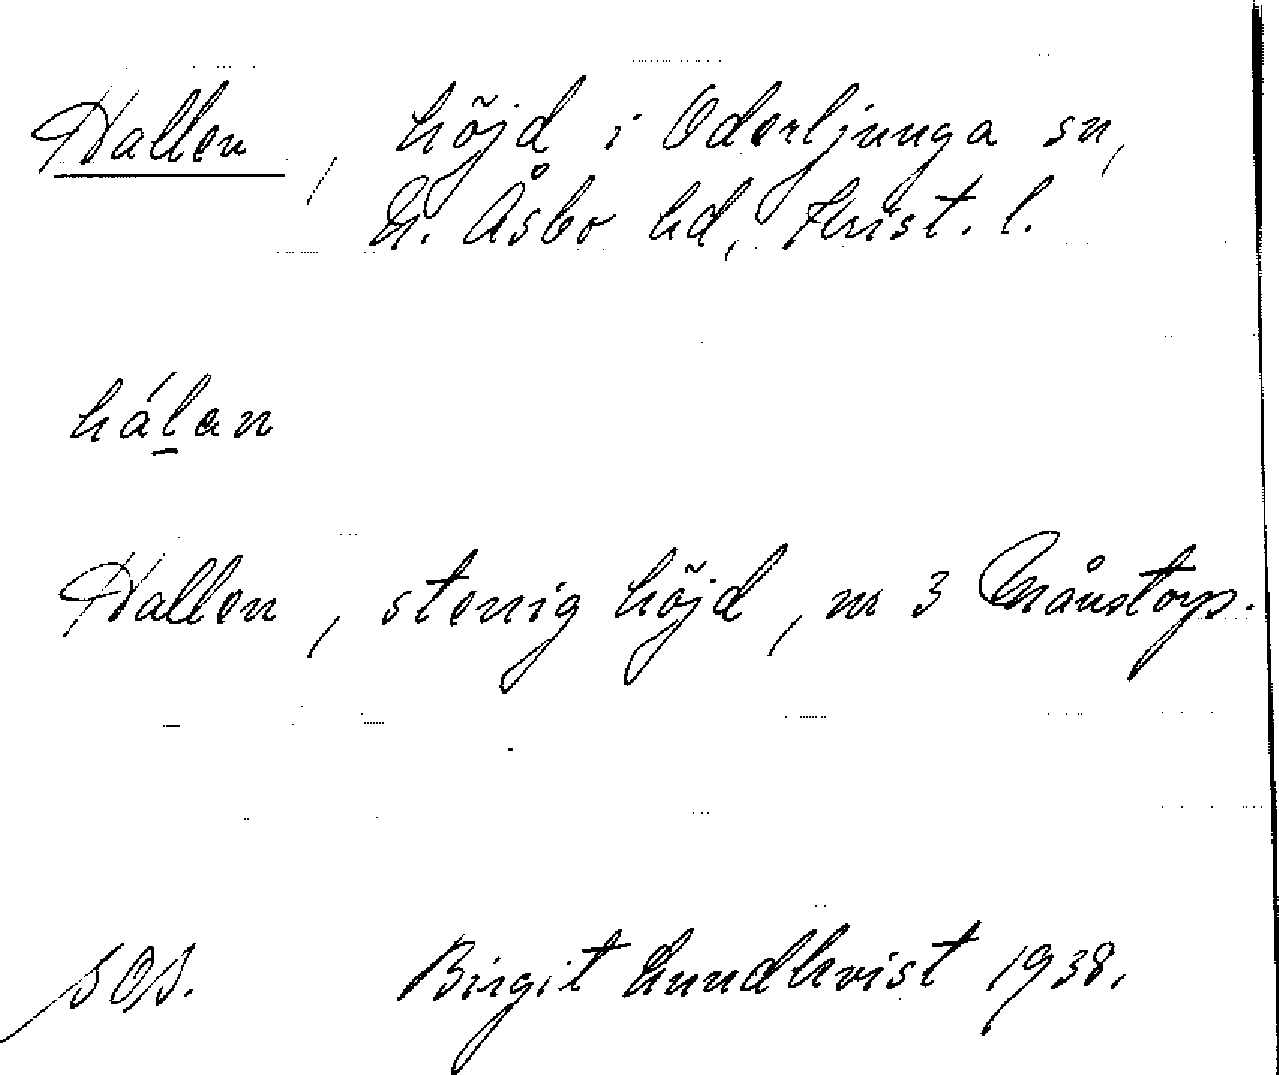 Hallen, höjd i Oderljunga sn,
N. Åsbo hd, Krist. l.
hál̲an
Hallen, stenig höjd, nr 3 Månstorp.
SOS. Birgit Lundkvist 1938.